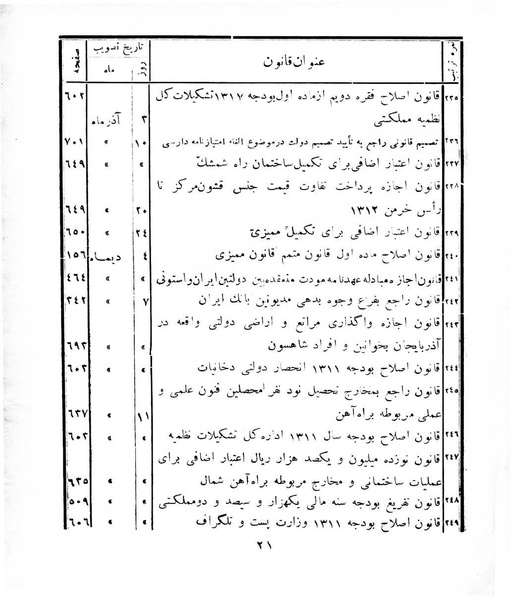 نمره ترتیب	عنوان قانون	تاریخ تصویب	صفحه
روز	ماه
۲۳۵	قانون اصلاح فقره دویم از ماده اول بودجه ۱۳۱۷ تشکیلات کل	۶۰۲
نظمیه مملکتی	۳	آذر ماه
۲۳۶	تصمیم قانونی راجع به تأیید تصمیم دولت در موضوع الغاء امتیازنامه دارسی	۱۰	»	۷۰۱
۲۳۷	قانون اعتبار اضافی برای تکمیل ساختمان راه شمشک	»	»	۶۴۹
۲۳۸	قانون اجازه پرداخت تفاوت قیمت جنس قشون مرکز تا
رأس خرمن ۱۳۱۲	۲۰	»	۶۴۹
۲۳۹	قانون اعتبار اضافی برای تکمیل ممیزی	۲۴	»	۶۵۰
۲۴۰	قانون اصلاح ماده اول قانون متمم قانون ممیزی	۴	دیماه	۱۵۶
۲۴۱	قانون اجازه مبادله عهدنامه مودت منعقده بین دولتین ایران و استونی	»	»	۴۶۴
۲۴۲	قانون راجع بفرع وجوه بدهی مدیونین بانک ایران	۷	»	۳۴۲
۲۴۳	قانون اجازه واگذاری مراتع و اراضی دولتی واقعه در
آذربایجان بخوانین و افراد شاهسون	»	»	۶۹۳
۲۴۴	قانون اصلاح بودجه ۱۳۱۱ انحصار دولتی دخانیات	»	»	۶۰۳
۲۴۵	قانون راجع بمخارج تحصیل نود نفر محصلین فنون علمی و
عملی مربوطه براه‌آهن	۱۱	»	۶۳۷
۲۴۶	قانون اصلاح بودجه سال ۱۳۱۱ اداره کل تشکیلات نظمیه	»	»	۶۰۳
۲۴۷	قانون نوزده میلیون و یکصد هزار ریال اعتبار اضافی برای
عملیات ساختمانی و مخارج مربوطه براه‌آهن شمال	»	»	۶۳۵
۲۴۸	قانون تفریغ بودجه سنه مالی یکهزار و سیصد و دو مملکتی	»	»	۵۰۹
۲۴۹	قانون اصلاح بودجه ۱۳۱۱ وزارت پست و تلگراف	»	»	۶۰۶
۲۱